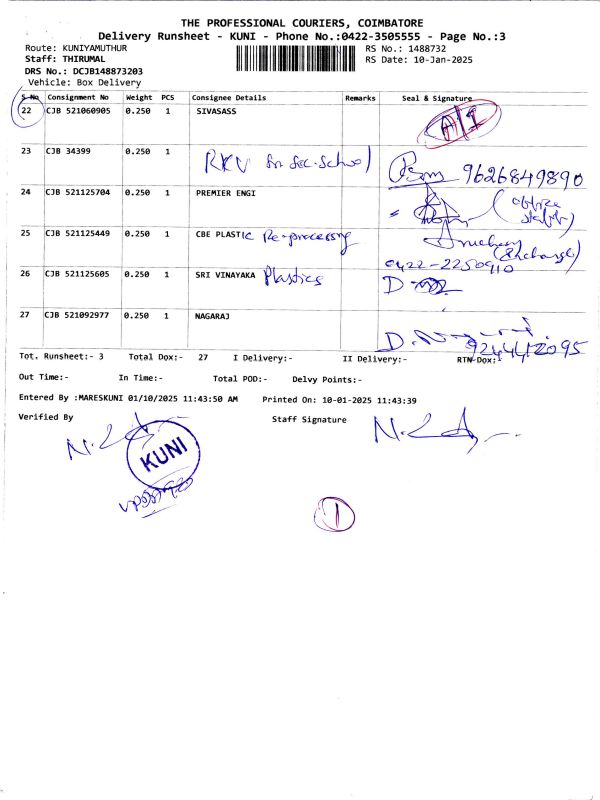 THE PROFESSIONAL COURIERS, COIMBATORE
Delivery Runsheet - KUNI - Phone No.:0422-3505555 - Page No.:3
Route: KUNIYAMUTHUR RS No.: 1488732
Staff: THIRUMAL RS Date: 10-Jan-2025
DRS No.: DCJB148873203
Vehicle: Box Delivery
S No Consignment No Weight PCS Consignee Details Remarks Seal & Signature
22 CJB 521060905 0.250 1 SIVASASS
23 CJB 34399 0.250 1 RKV Sn Sec-School 9626849890
24 CJB 521125704 0.250 1 PREMIER ENGI
25 CJB 521125449 0.250 1 CBE PLASTIC Re-processing
0422-2250910
26 CJB 521125605 0.250 1 SRI VINAYAKA Plastics
27 CJB 521092977 0.250 1 NAGARAJ
Tot. Runsheet:- 3 Total Dox:- 27 I Delivery:- II Delivery:- RTN Dox:-
Out Time:- In Time:- Total POD:- Delvy Points:-
Entered By :MARESKUNI 01/10/2025 11:43:50 AM Printed On: 10-01-2025 11:43:39
Verified By Staff Signature
KUNI
1